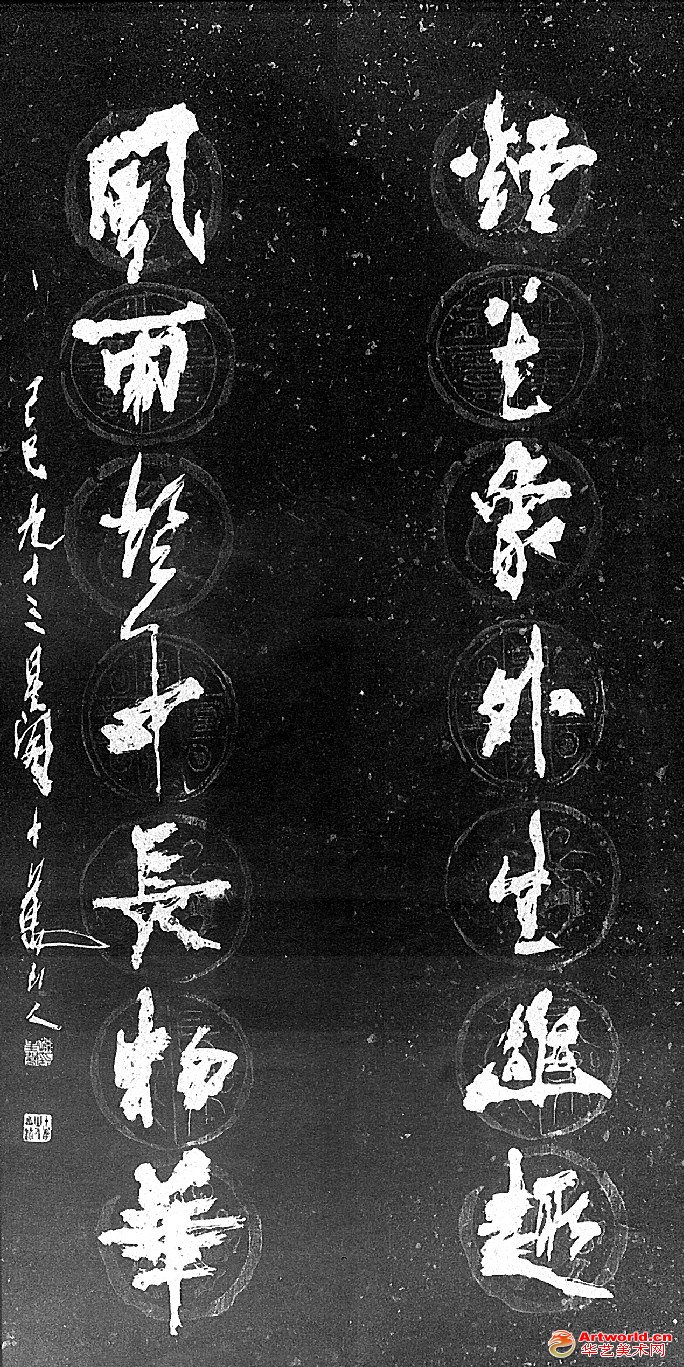 煙象外生幽趣
風雨中長物華
己巳九十三星閣十萬山人
Artworld.cn
华艺美术网